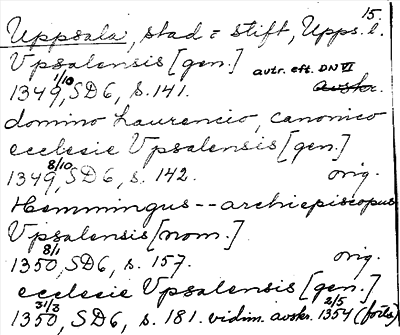 15.
Uppsala, stad = stift, Upps. l.
Vpsalensis [gen.]
avtr. eft. DN VI
1349 1/10, SD6, s. 141. avskr.
domino Laurencio, canonico
ecclesie Vpsalensis [gen.]
1349 8/10, SD6, s. 142. orig.
Hemmingus -- archiepiscopus
Vpsalensis [nom.]
1350 8/1, SD6, s. 157. orig.
ecclesie Vpsalensis [gen.]
1350 31/3, SD6, s. 181. vidim. avskr. 1354 2/5 (forts)